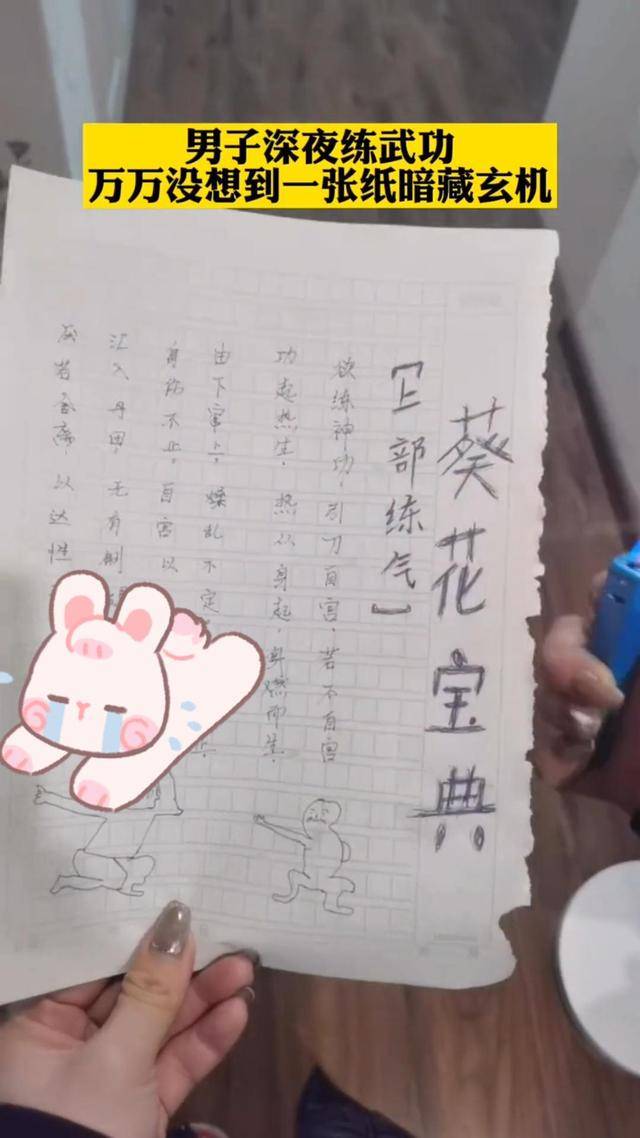 男子深夜练武功
万万没想到一张纸暗藏玄机
葵花宝典
【上部练气】
欲练神功，引刀自宫，若不自宫
功起热生，热从身起，身燃而生，
由下窜上，燥乱不定
身伤不止，自宫以
汇入丹田，无有
以达性